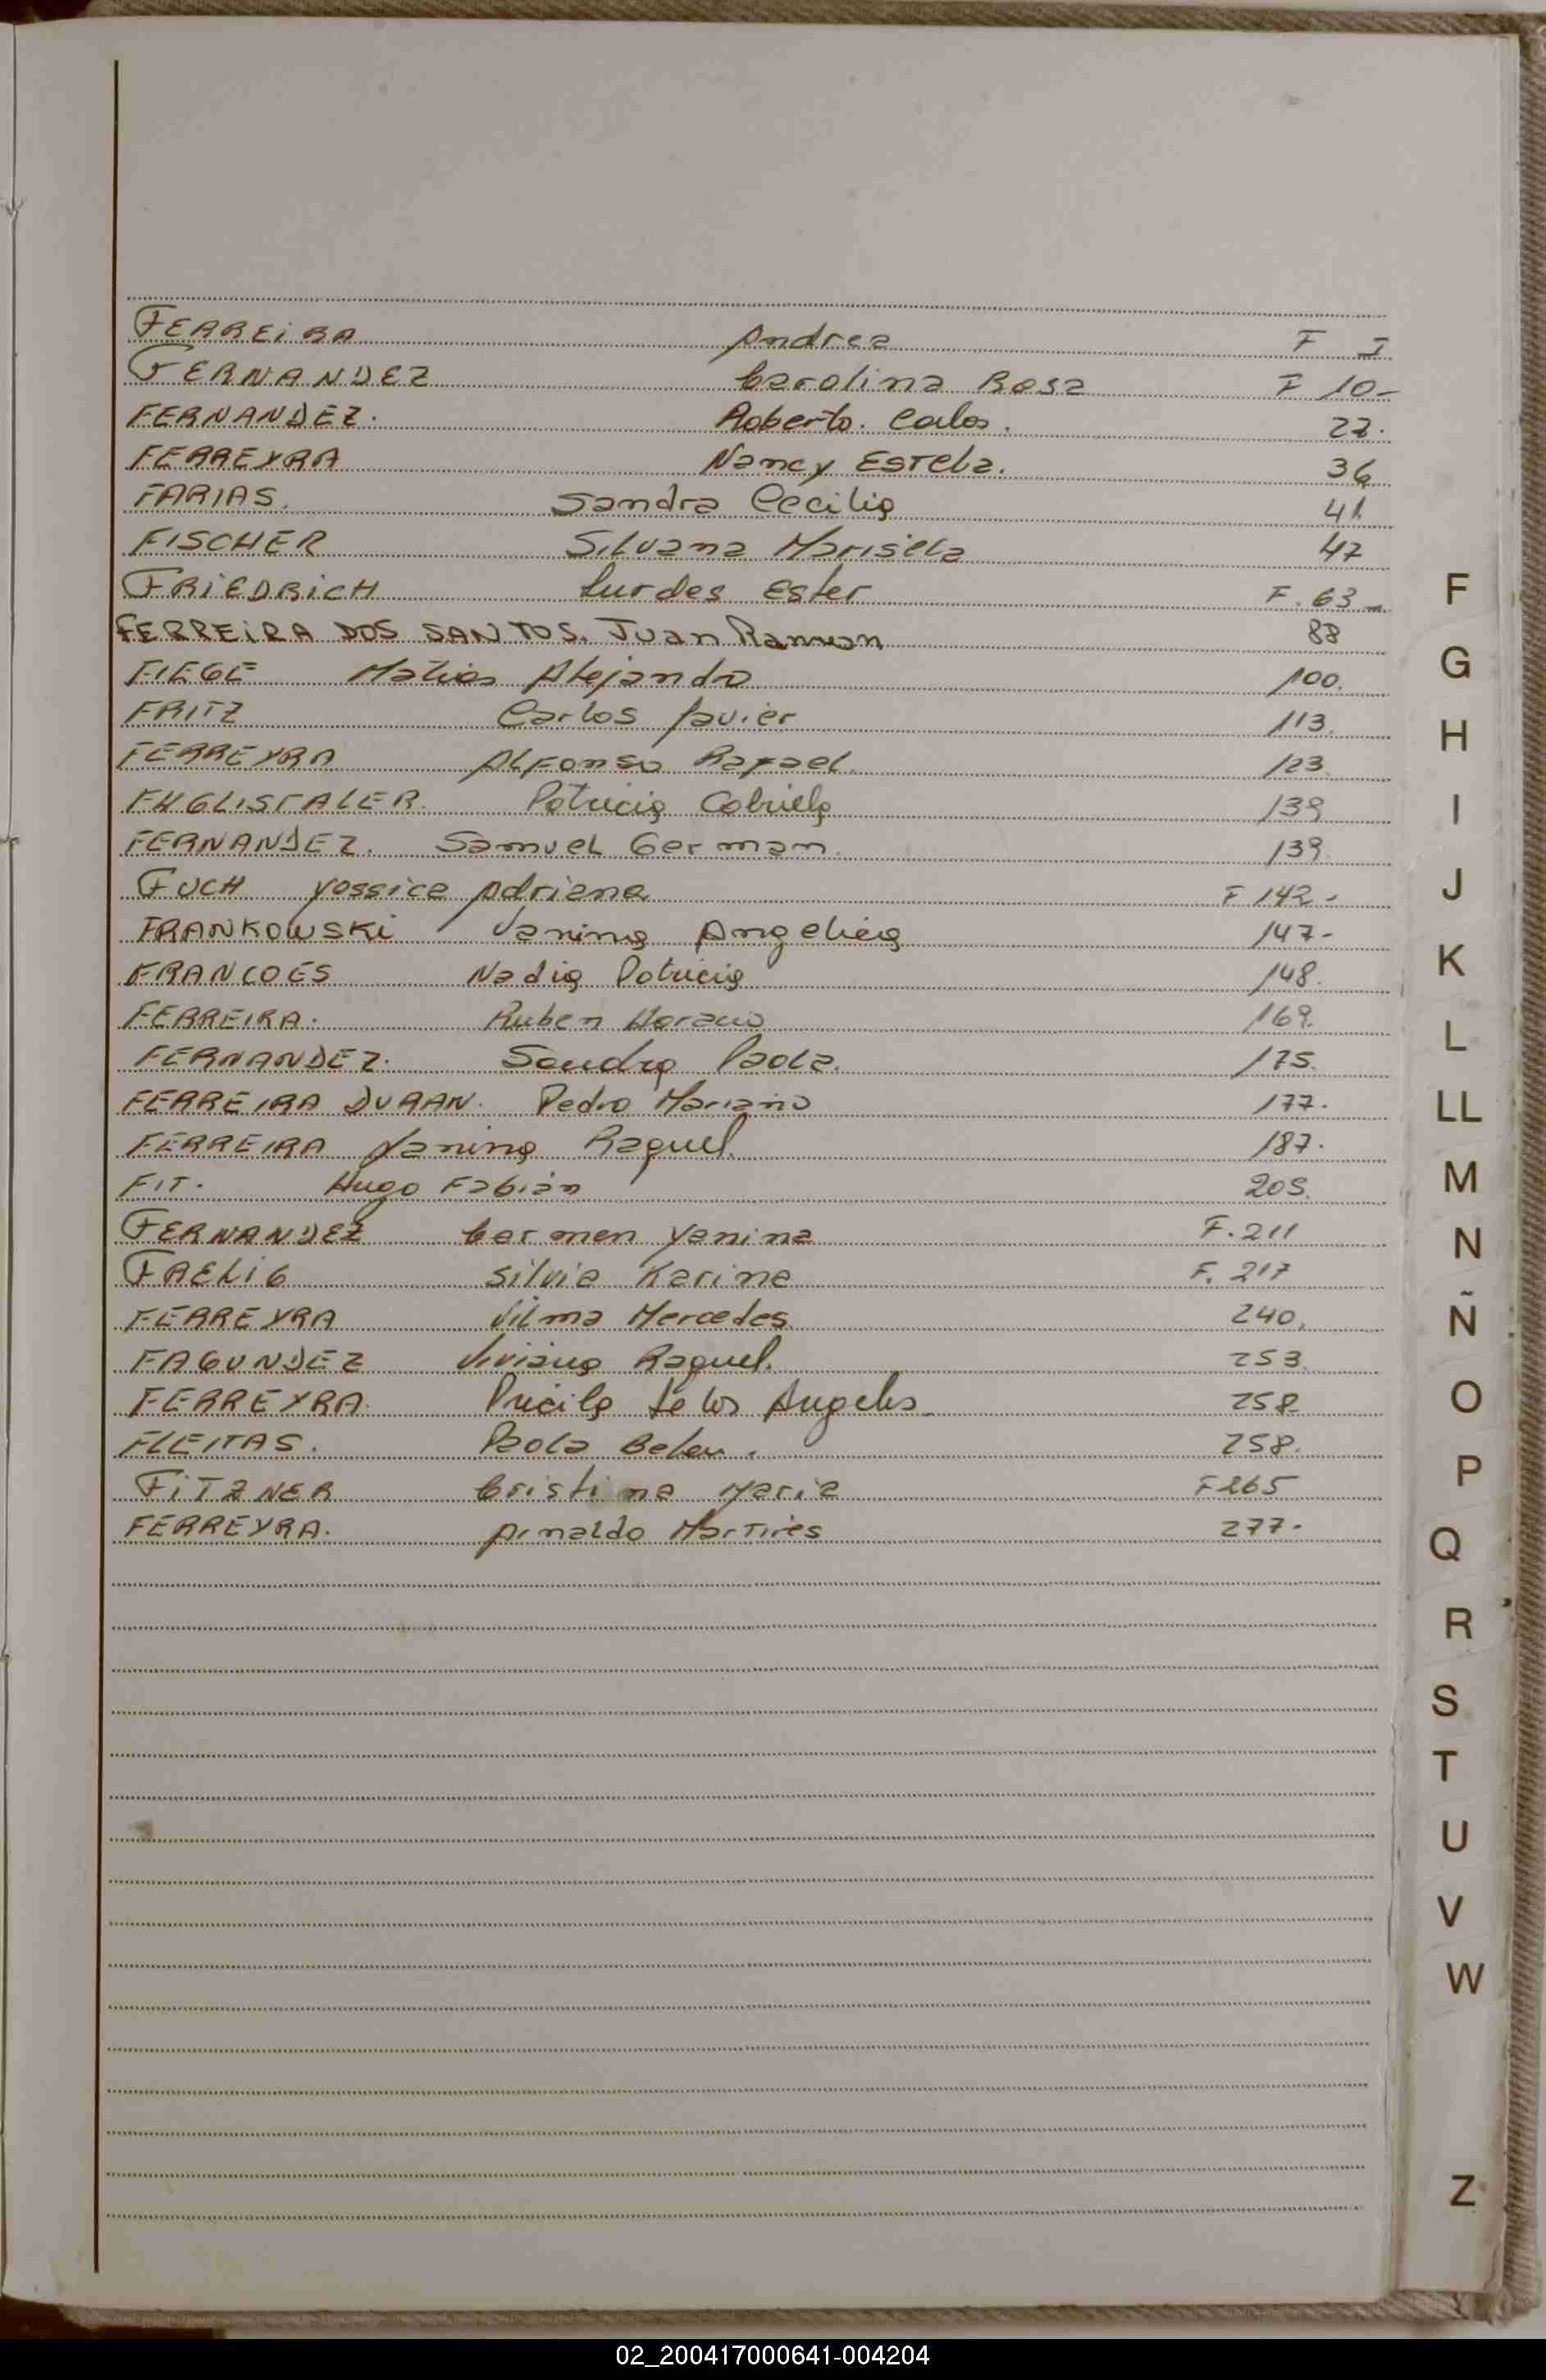 FERREiRA Andrea F I
FERNANDEZ Carolina Rosa F 10-
FERNANDEZ. Roberto. Carlos. 22.
FERREYRA Nancy Estela. 36
FARIAS. Sandra Cecilia 41
FISCHER Silvana Marisela 47
FRiEDRiCH Lurdes Ester F. 63-
FERREiRA DOS SANTOS. Juan Ramon 88
FIEGE Matias Alejandro 100.
FRITZ Carlos Javier 113.
FERREYRA Alfonso Rafael. 123.
FHGLISTALER. Patricia Gabriela 139
FERNANDEZ. Samuel German. 139.
FUCH Yossica Adriana F 142-
FRANKOWSKi Janina Angelica 147-
FRANCOES Nadia Patricia 148.
FERREIRA. Ruben Horacio 169.
FERNANDEZ. Sandra Paola. 175.
FERREIRA DURAN. Pedro Mariano 177.
FERREIRA Yanina Raquel. 187.
FIT. Hugo Fabian 205.
FERNANDEZ Carmen Yanina F. 211
FAELiG Silvia Karina F. 217
FERREYRA Vilma Mercedes 240.
FAGUNDEZ Viviana Raquel. 253.
FERREYRA. Pricila de los Angeles. 258
FLEITAS. Paola Belen. 258.
FiTZNER Cristina Maria F 265
FERREYRA. Arnaldo Martires 277.
F
G
H
I
J
K
L
LL
M
N
Ñ
O
P
Q
R
S
T
U
V
W
Z
02_200417000641-004204